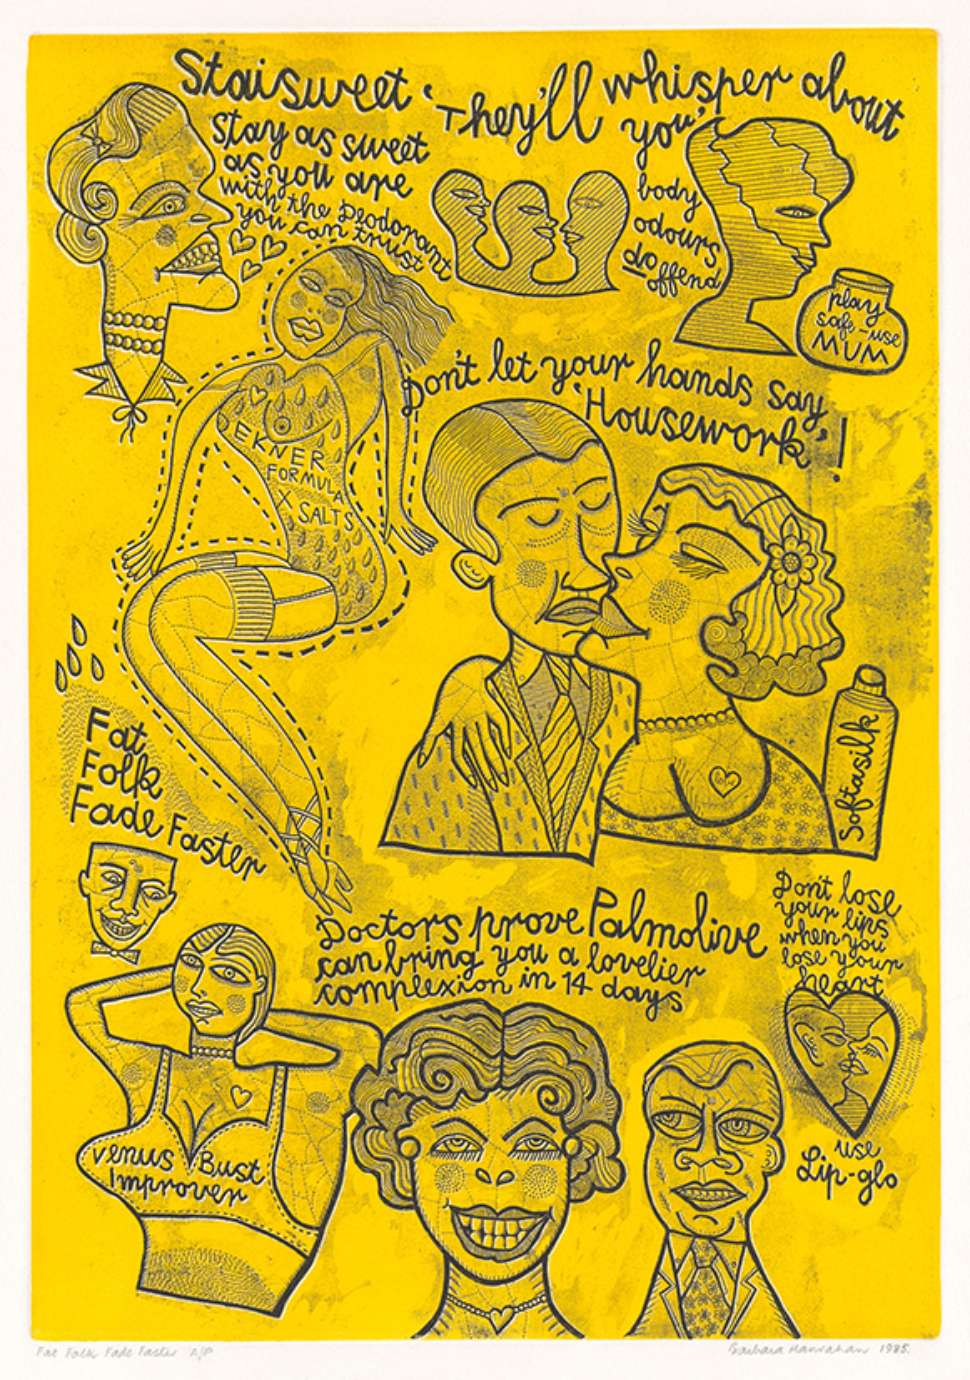 Staisweet
Stay as sweet
as you are
with the Deodorant
you can trust
'They'll whisper about
you'
body
odours
do
offend
play
safe-use
MUM
Don't let your hands say
'Housework'!
EKNER
FORMULA
X SALTS
Softasilk
Fat
Folk
Fade Faster
Doctors prove Palmolive
can bring you a lovelier
complexion in 14 days
Don't lose
your lips
when you
lose your
heart
use
Lip-glo
Venus Bust
Improver
Fat Folk Fade Faster A/P
Barbara Hanrahan 1985.